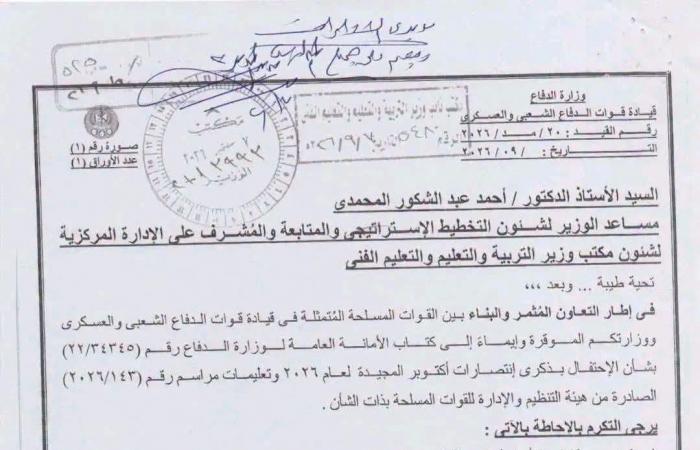 وزارة الدفاع
قيادة قوات الدفاع الشعبى والعسكرى
رقم القيد : ٢٠ / مـد / ٢٠٢٦
التاريخ : / ٠٩ / ٢٠٢٦
صورة رقم (١)
عدد الأوراق (١)
مكتب نائب وزير التربية والتعليم والتعليم الفنى
مكتب
الوزير
السيد الأستاذ الدكتور / أحمد عبد الشكور المحمدى
مساعد الوزير لشئون التخطيط الإستراتيجى والمتابعة والمُشرف على الإدارة المركزية
لشئون مكتب وزير التربية والتعليم والتعليم الفنى
تحية طيبة ... وبعد ،،،
فى إطار التعاون المُثمر والبناء بين القوات المسلحة المُتمثلة فى قيادة قوات الدفاع الشعبى والعسكرى
ووزارتكم الموقرة وإيماءً إلى كتاب الأمانة العامة لوزارة الدفاع رقم (٢٢/٣٤٣٤٥)
بشأن الإحتفال بذكرى إنتصارات أكتوبر المجيدة لعام ٢٠٢٦ وتعليمات مراسم رقم (٢٠٢٦/١٤٣)
الصادرة من هيئة التنظيم والإدارة للقوات المسلحة بذات الشأن .
يرجى التكرم بالاحاطة بالآتى :